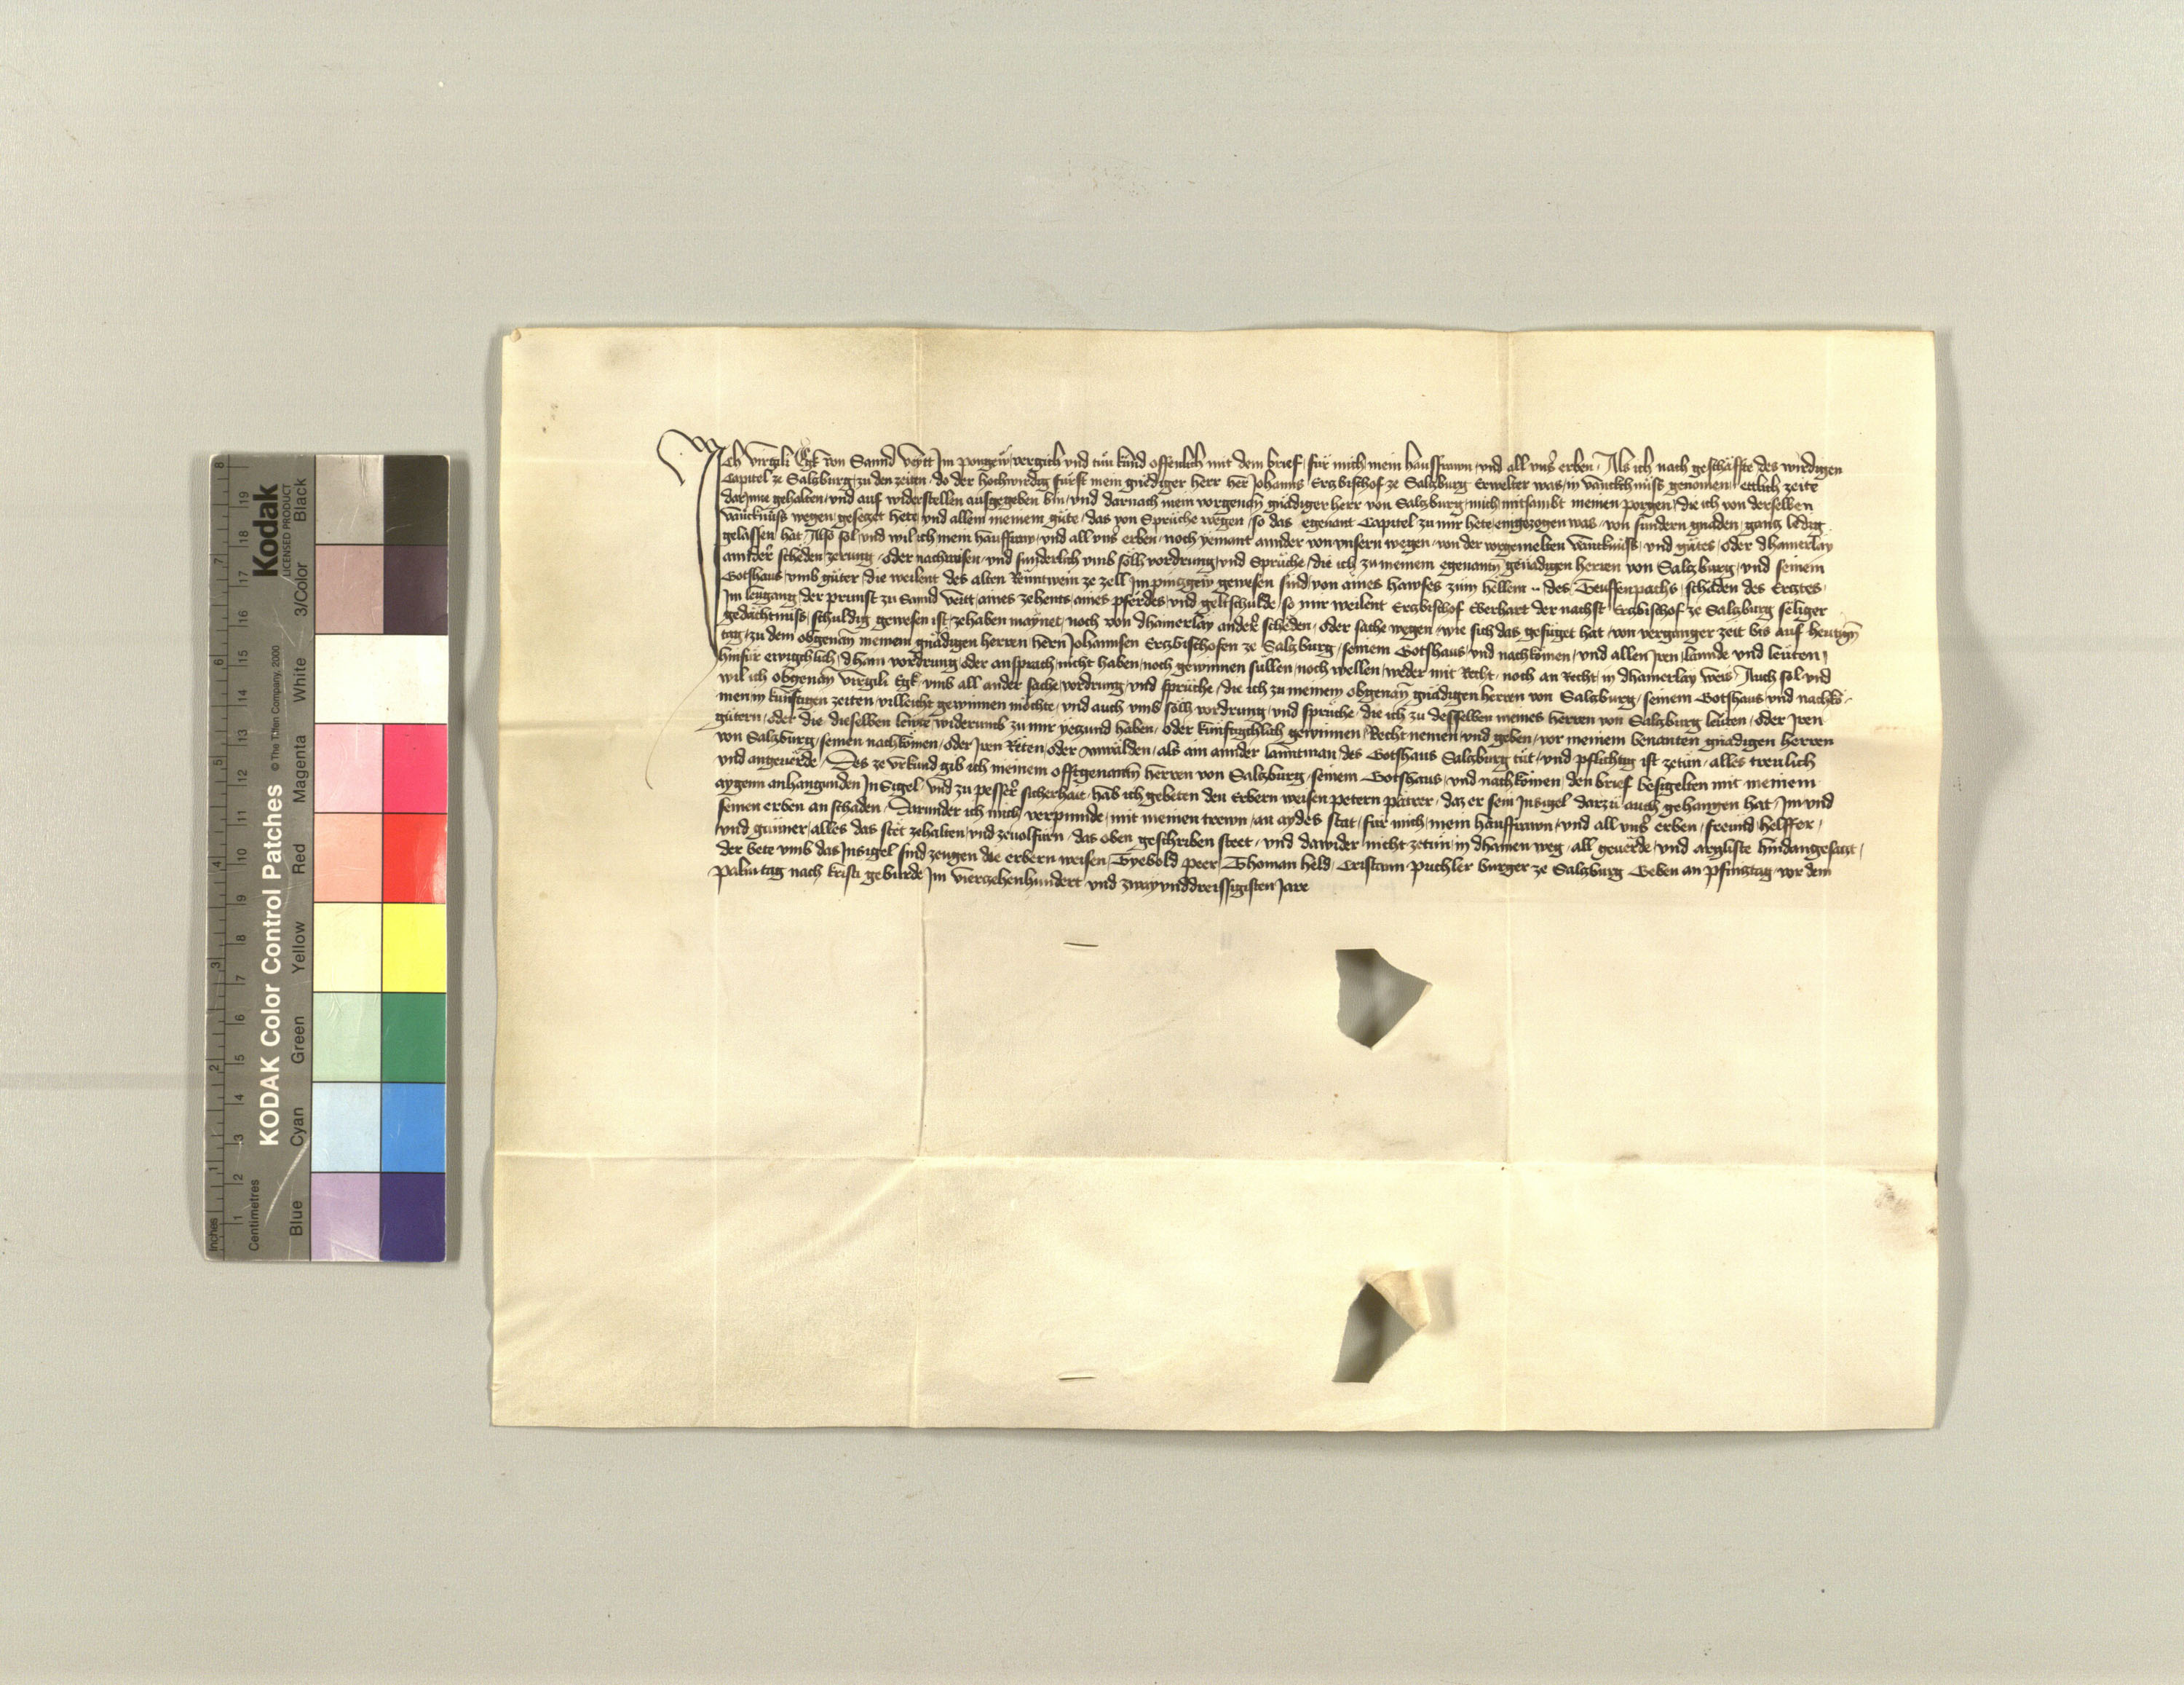 Ich virgili Egk von Sannd veytt Im pongew vergich vnd tun kund offenlich mit dem brief fur mich mein hausfrawn vnd all vnser erben Als ich nach geschäffte des wirdigen
Capitel ze Salzburg zu den zeiten do der hochwirdig furst mein gnediger herr her Johanns Erzbischof ze Salzburg Erwelter was in vanckchnuss genomen ettlich zeite
darinne gehalten vnd auf widerstellen aufgegeben bin vnd darnach mein vorgenant gnädiger herr von Salzburg mich mitsambt meinen porgen die ich von derselben
vancknuss wegen gesetzet hete vnd allem meinem gute das von Spruche wegen so das egenant Capitel zu mir hete eingezogen was von sundern gnaden gantz ledig
gelassen hat Also sol vnd wil ich mein hausfraw vnd all vns erben noch yemant annder von vnsern wegen von der vorgemelten vancknuss vnd gutes oder dhainerlay
annder scheden zerung oder nachraisen vnd sunderlich vmb sölh vordrung vnd Spruche die ich zu meinem egenanten genadigen herren von Salzburg vnd seinem
Gotshaus vmb guter die weilent des alten Renntwein ze zell Im pintzgew gewesen sind von aines hawses zum hellein des Teuffenpachs scheden des Erztes
Im leugang der prunst zu Sannd veitt aines zehents aines pferdes vnd geltschulde so mir weilent Erzbischof Eberhart der nachst Erzbischof ze Salzburg seliger
gedachtnuss schuldig gewesen ist zehaben maynet noch von dhainerlay ander scheden oder sache wegen wie sich das gefuget hat von verganger zeit bis auf hewtign
tag zu dem obgenan meinem gnädigen herren hern Johannsen Erzbischofen ze Salzburg seinem Gotshaus vnd nachkomen vnd allen Iren lannde vnd leuten
hinfur ewigchlich dhain vordrung oder ansprach nicht haben noch gewinnen sullen noch wellen weder mit Recht noch an Recht in dhainerlay weis Auch sol vnd
wil ich obgenan virgili Egk vmb all ander sache vordrung vnd spruche die ich zu meinem obgenan gnädigen herren von Salzburg seinem Gotshaus vnd nachko
men in kunftigen zeiten villeicht gewinnen möchte vnd auch vmb sölh vordrung vnd spruche die ich zu desselben meines herren von Salzburg leuten oder Iren
gutern oder die dieselben lewte widerumb zu mir yetzund haben oder kunftigchlich gewinnen Recht nemen vnd geben vor meinem benanten gnadigen herren
von Salzburg seinen nachkomen oder Iren Reten oder Anwälden als ain annder lanntman des Gotshaus Salzburg tut vnd pflichtig ist zetun alles treulich
vnd angeuerde Des ze vrkund gib ich meinem offtgenanten herren von Salzburg seinem Gotshaus vnd nachkomen den brief besigelten mit meinem
aygenn anhangunden InSigel Vnd zu pesser sicherhait hab ich gebeten den Erbern weisen petern daz er sein Insigel darzu auch gehangen hat Im vnd
seinen erben an schaden Darunder ich mich verpinnde mit meinen trewn an aydes stat fur mich mein hausfrawn vnd all vns erben freund helffer
vnd gunner alles das stet zehalten vnd zeuolfurn das oben geschriben steet vnd dawider nicht zetun in dhainen weg all geuerde vnd argliste hindangesatzt
der bete vmb das Insigel sind zeugen die erbern weisen Tyebold peer Thoman held Cristann puchler burger ze Salzburg Geben an pfintztag vor dem
Palmtag nach kristi geburde Im vierzehenhundert vnd zwayvnddreissigisten Jare
KODAK Color Control Patches © The Tiffen Company, 2000
Kodak
LICENSED PRODUCT
Inches 1 2 3 4 5 6 7 8
Centimetres 1 2 3 4 5 6 7 8 9 10 11 12 13 14 15 16 17 18 19
Blue Cyan Green Yellow Red Magenta White 3/Color Black